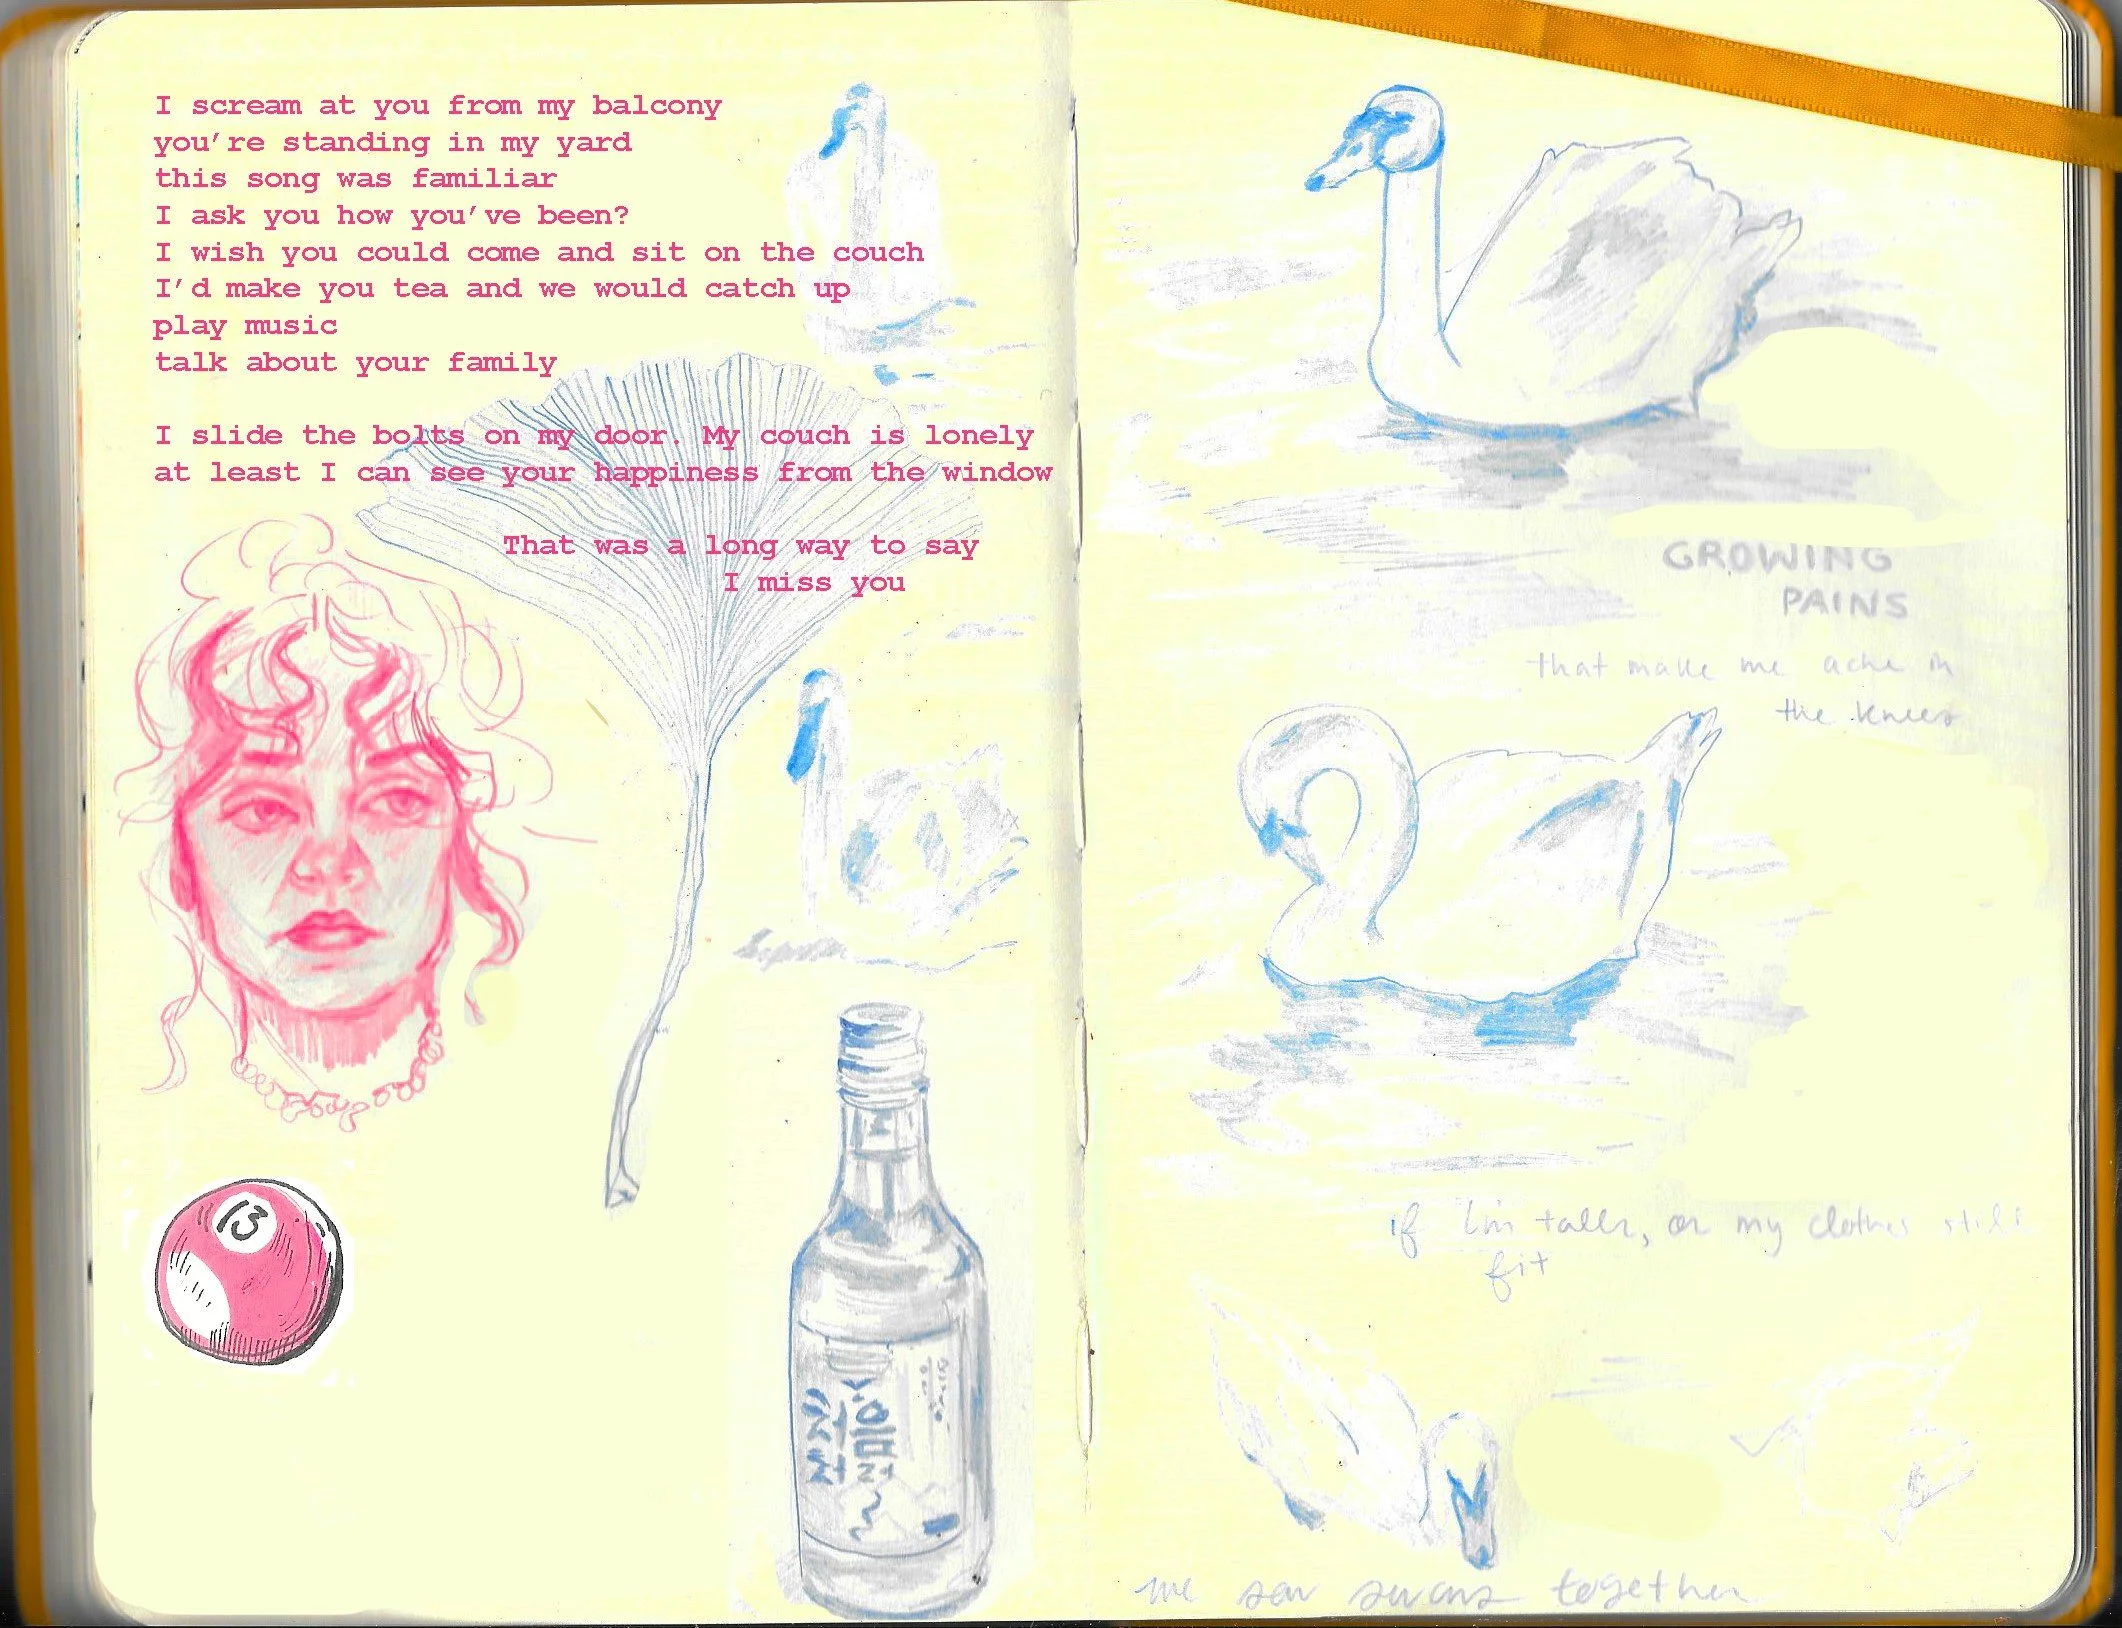 I scream at you from my balcony
you're standing in my yard
this song was familiar
I ask you how you've been?
I wish you could come and sit on the couch
I'd make you tea and we would catch up
play music
talk about your family
I slide the bolts on my door. My couch is lonely
at least I can see your happiness from the window
That was a long way to say
I miss you
13
GROWING
PAINS
that make me ache in
the knees
if I'm taller, or my clothes still
fit
we saw swans together